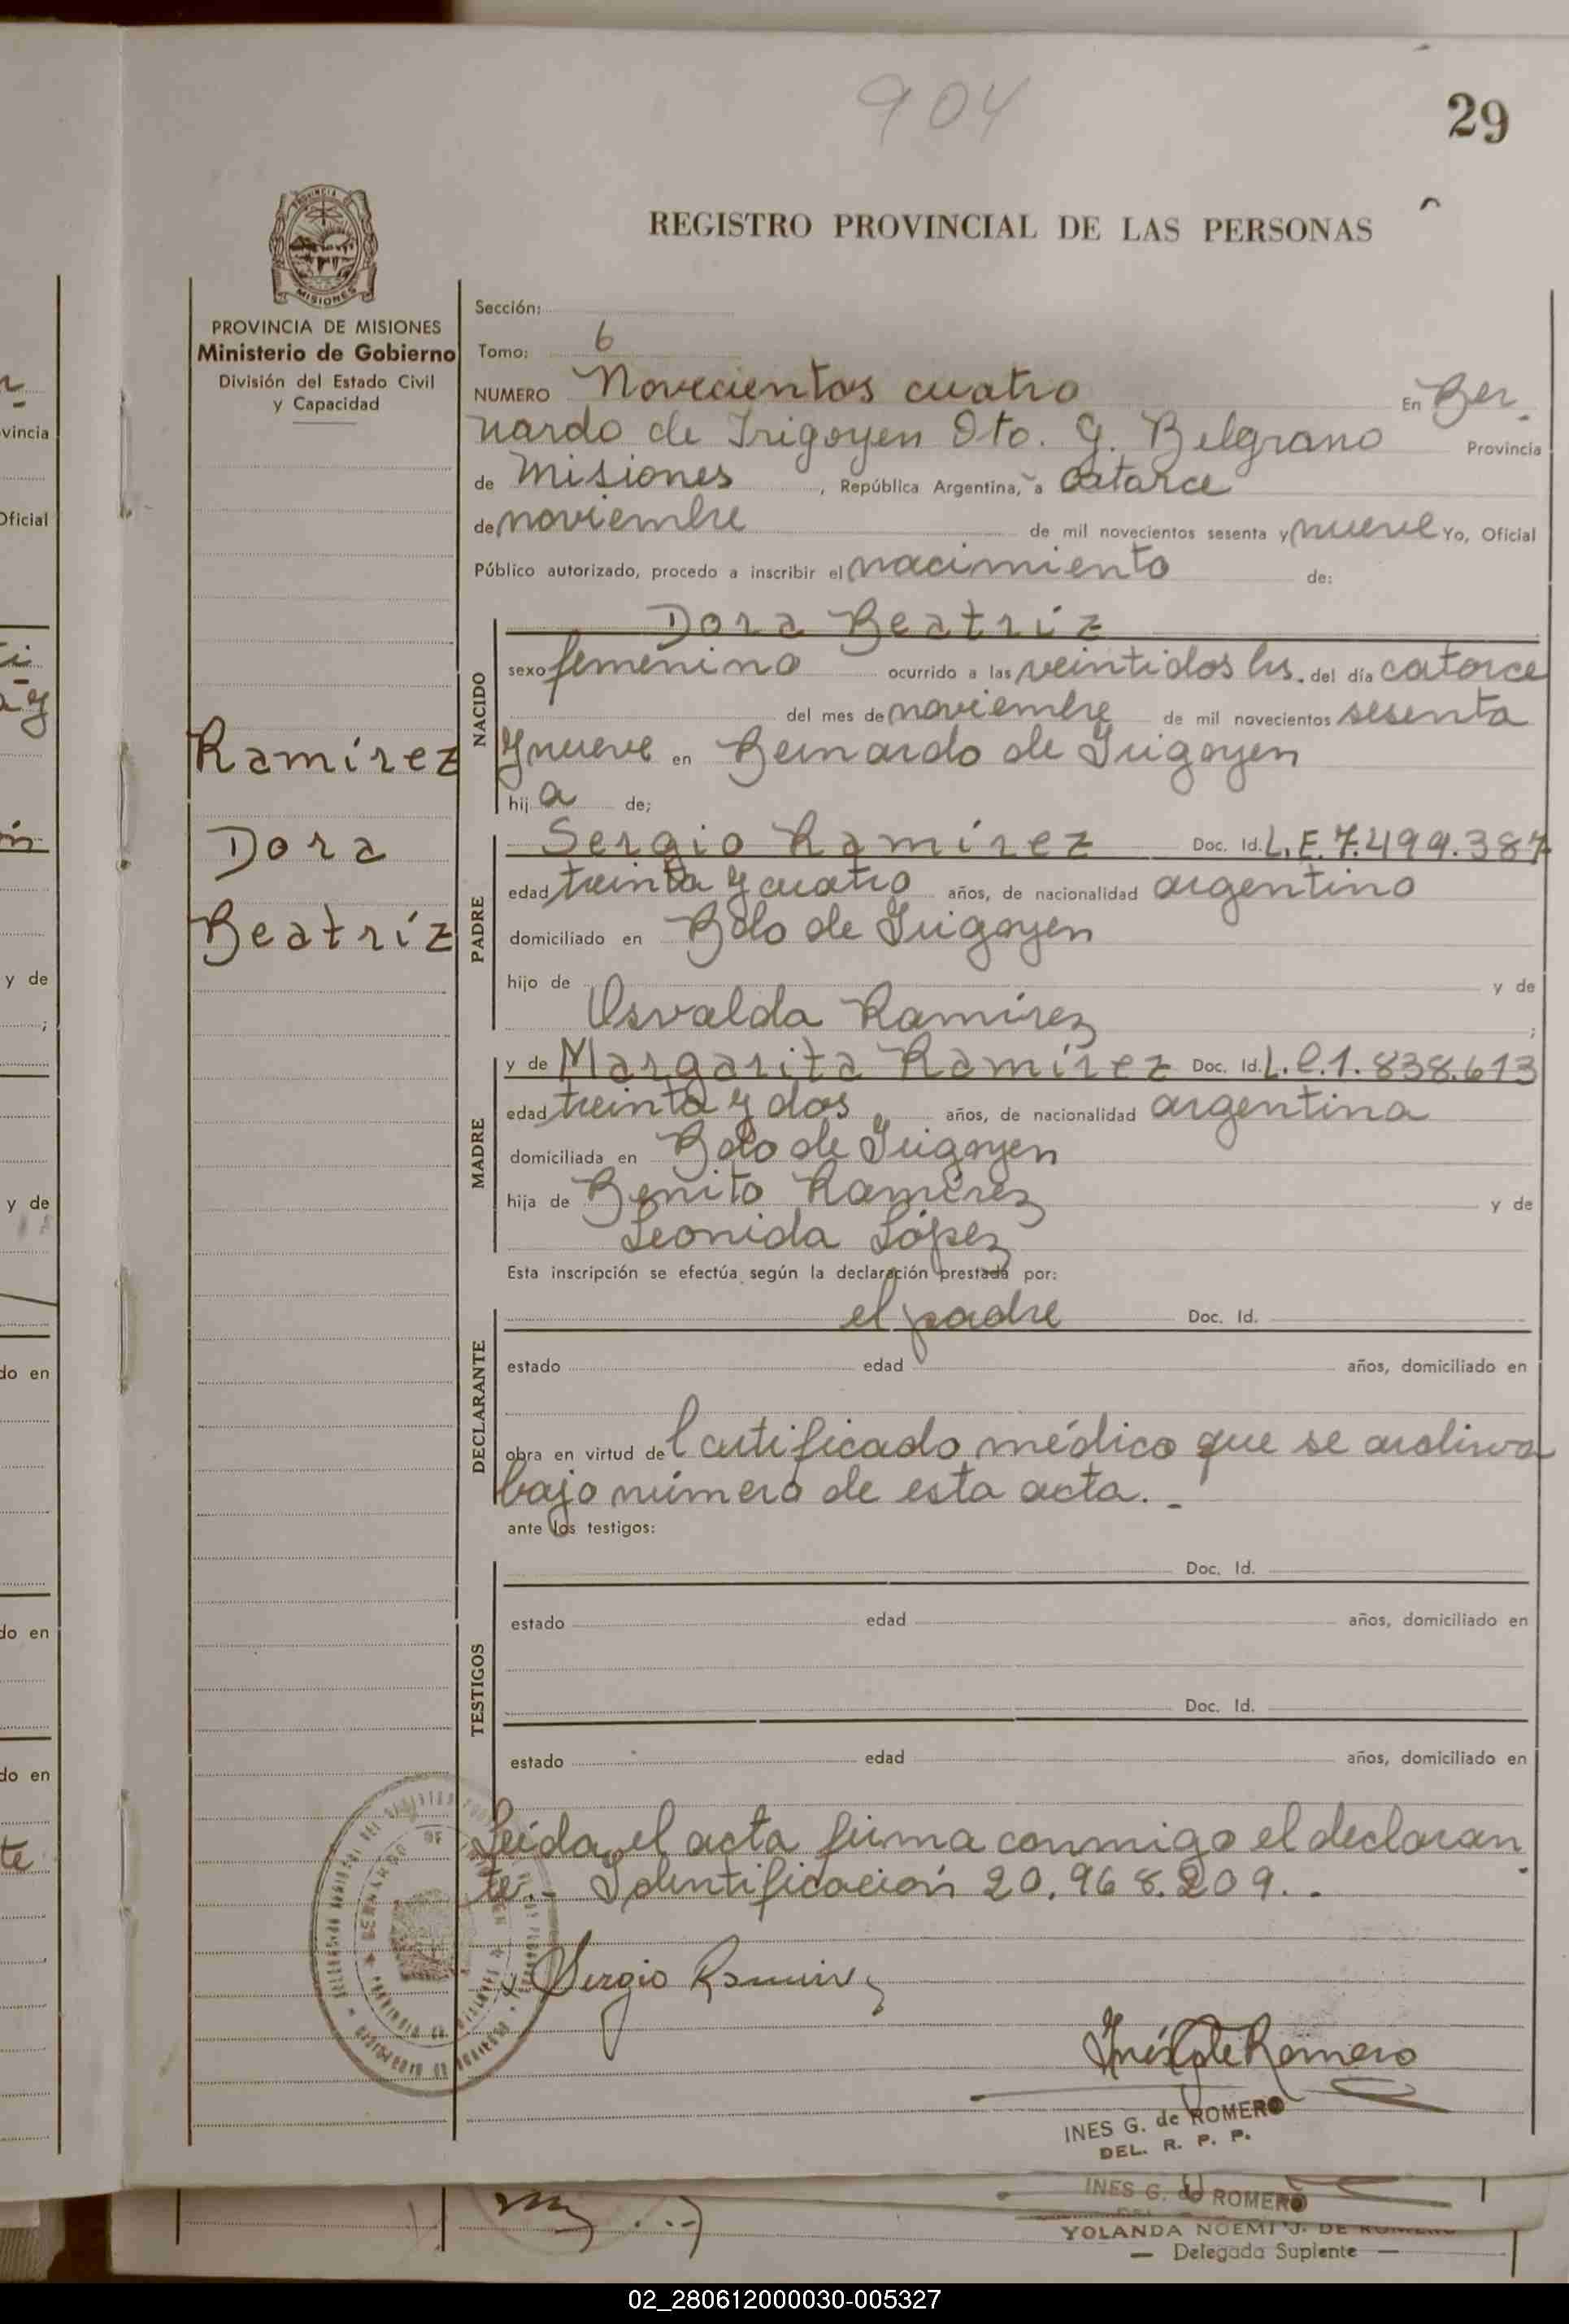 904
29
REGISTRO PROVINCIAL DE LAS PERSONAS
MISIONES
PROVINCIA DE MISIONES
Ministerio de Gobierno
División del Estado Civil
y Capacidad
Sección:
Tomo: 6
NUMERO Novecientos cuatro En Ber-
nardo de Irigoyen Dto. G. Belgrano Provincia
de Misiones, República Argentina, a Catorce
de noviembre de mil novecientos sesenta y nueve Yo, Oficial
Público autorizado, procedo a inscribir el nacimiento de:
Ramírez
Dora
Beatríz
NACIDO
Dora Beatríz
sexo femenino ocurrido a las veintidos hs. del día catorce
del mes de noviembre de mil novecientos sesenta
y nueve en Bernardo de Irigoyen
hij a de;
PADRE
Sergio Ramírez Doc. Id. L.E. 7.499.387
edad treinta y cuatro años, de nacionalidad argentino
domiciliado en Bdo de Irigoyen
hijo de y de
Osvalda Ramírez ;
MADRE
y de Margarita Ramírez Doc. Id. L.C. 1.838.613
edad treinta y dos años, de nacionalidad argentina
domiciliada en Bdo de Irigoyen
hija de Benito Ramírez y de
Leonida López
Esta inscripción se efectúa según la declaración prestada por:
DECLARANTE
el padre Doc. Id.
estado edad años, domiciliado en
obra en virtud de l certificado médico que se archiva
bajo número de esta acta.-
ante los testigos:
TESTIGOS
Doc. Id.
estado edad años, domiciliado en
Doc. Id.
estado edad años, domiciliado en
Leída el acta firma conmigo el declaran
te.- Identificación 20.968.209.-
Sergio Ramirez
Inés G de Romero
INES G. de ROMERO
DEL. R. P. P.
INES G. de ROMERO
YOLANDA NOEMI J. DE ROMERO
— Delegada Suplente —
vincia
Oficial
y de
y de
do en
do en
do en
te
02_280612000030-005327